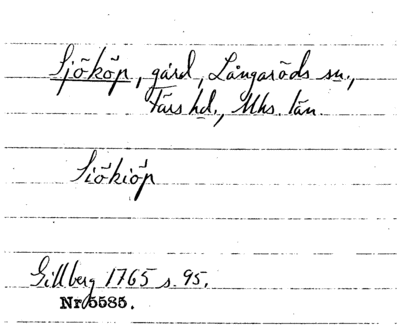 Sjököp, gård, Långaröds sn.,
Färs hd., Mhs. län.
Siökiöp
Gillberg 1765 s. 95.
Nr 5585.